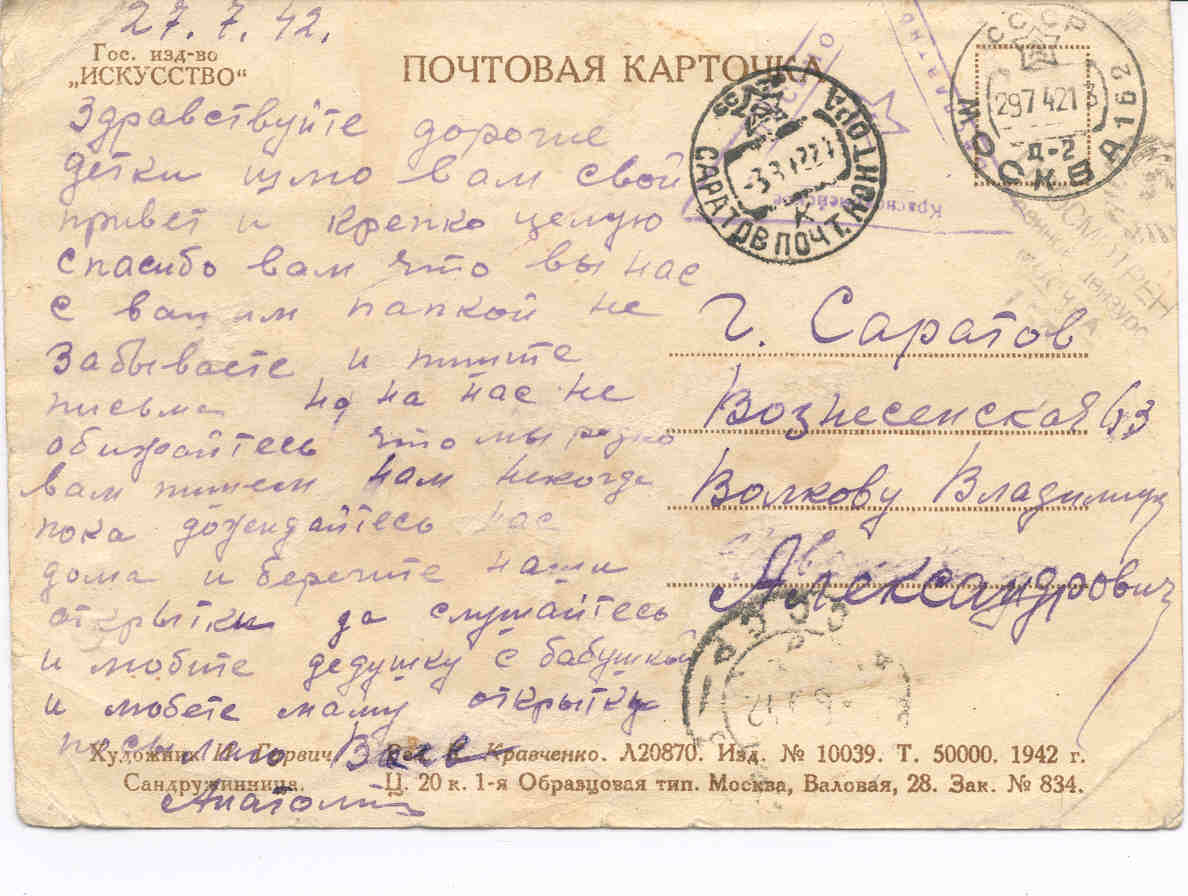 27.7.42.
Гос. изд-во
„ИСКУССТВО“
ПОЧТОВАЯ КАРТОЧКА
Здравствуйте дорогие
детки шлю вам свой
привет и крепко целую
спасибо вам что вы нас
с вашим папкой не
забываете и пишите
письма но на нас не
обижайтесь что мы редко
вам пишем нам некогда
пока дожендайтесь нас
дома и беречите наши
открытки да слушайтесь
и любите дедушку с бабушкой
и любете маму открытку
посылаю Вале
Анатолий
СССР
МОСКВА 162
29742213
Д-2
САРАТОВ ПОЧТ. КОНТОРА
Красноармейское
ПРОСМОТРЕНО
МОСКВА
г. Саратов
Вознесенская 63
Волкову Владимиру
Александровичу
Художник И. Горвич
Сандружинница.
Кравченко. Л20870. Изд. № 10039. Т. 50000. 1942 г.
Ц. 20 к. 1-я Образцовая тип. Москва, Валовая, 28. Зак. № 834.